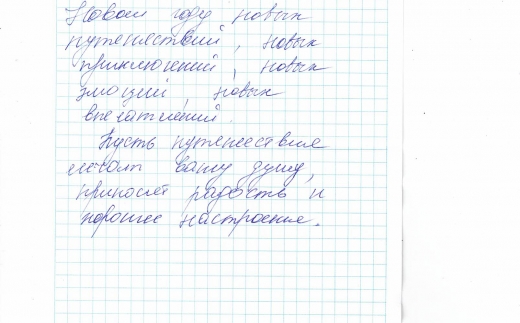 Новом году новых
путешествий, новых
приключений, новых
эмоций, новых
впечатлений.
Пусть путешествие
вашу душу,
приносят радость и
хорошее настроение.